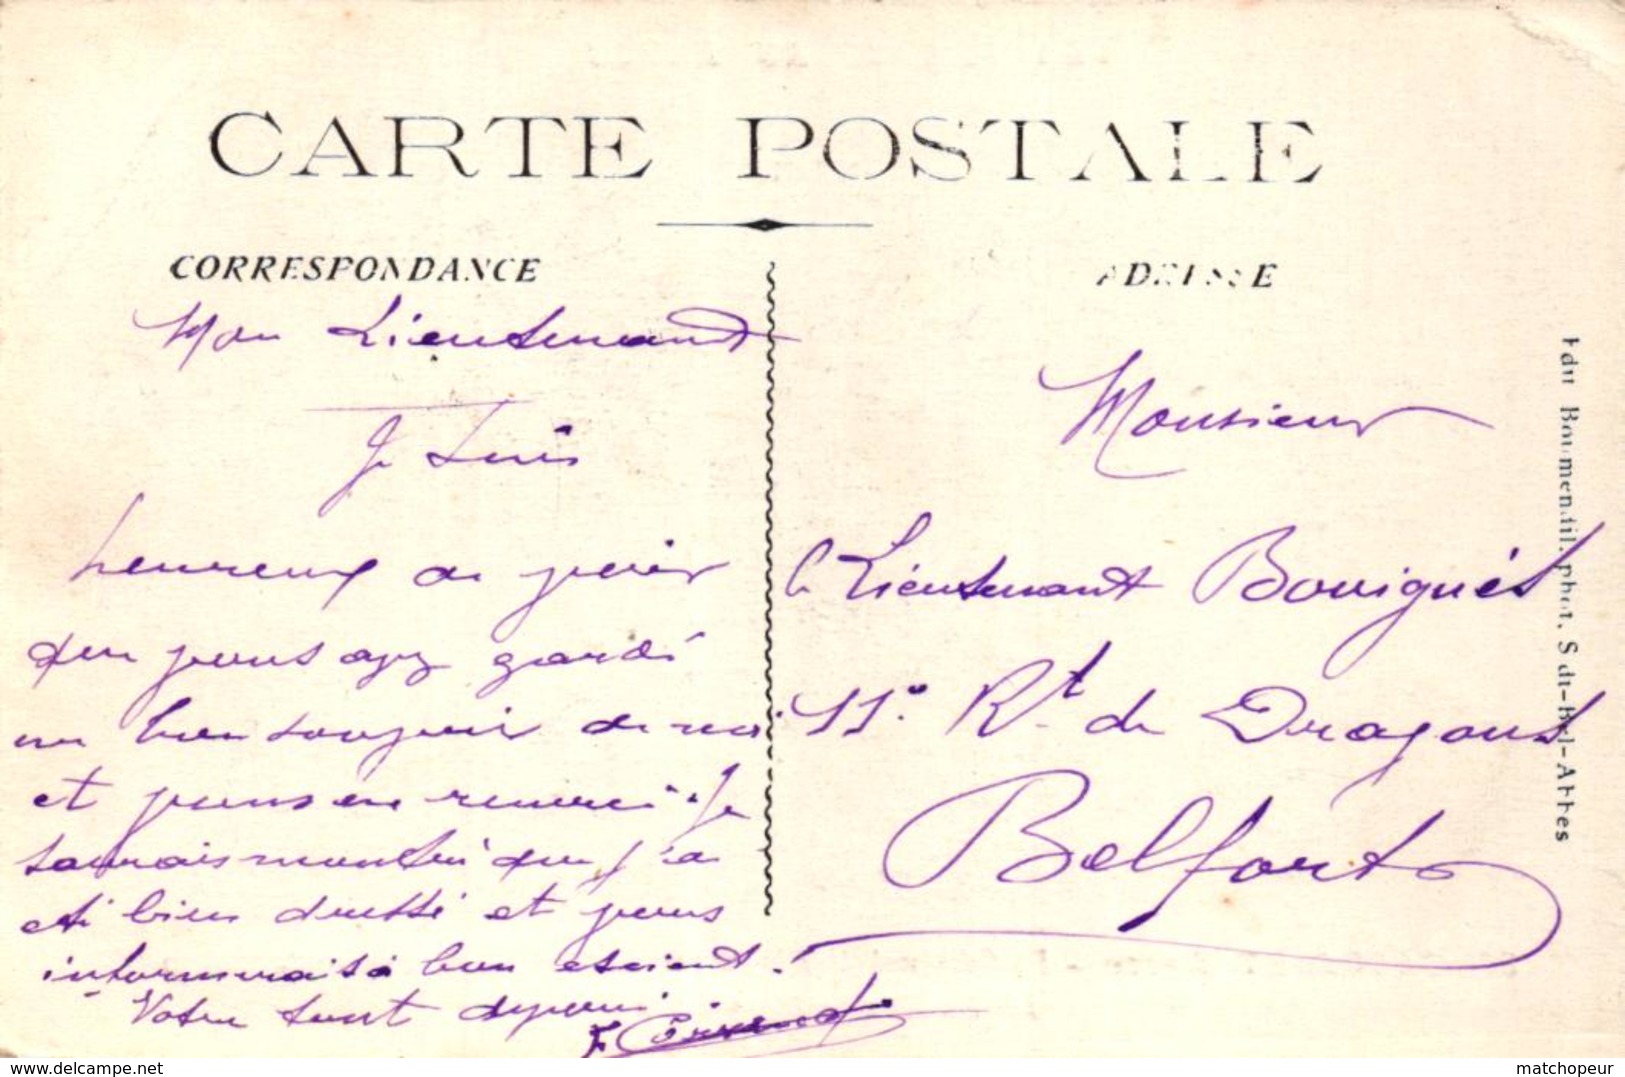 CARTE POSTALE
CORRESPONDANCE
ADRESSE
Mon Lieutenant
Je suis
heureux de
que vous ayez gardé
un bon souvenir de moi
et vous en remercie. Je
saurais que j'ai
été bien dressé et vous
à bon escient.
Votre tout
Monsieur
le Lieutenant Bouigués
11e Rt de Dragons
Belfort
phot. Sidi-Bel-Abbes
delcampe.net
matchopeur